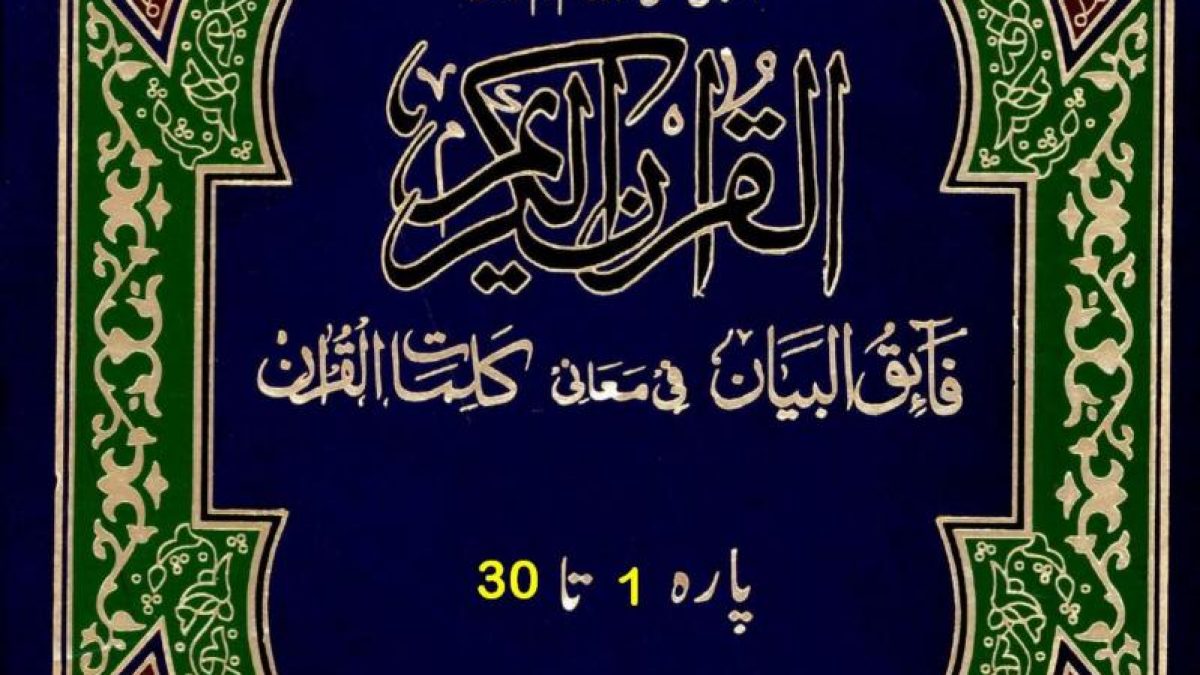 القرآن الكريم
فَآئِقُ البَيَان فِي مَعَانِي كَلِمَات القُرْآن
پاره 1 تا 30